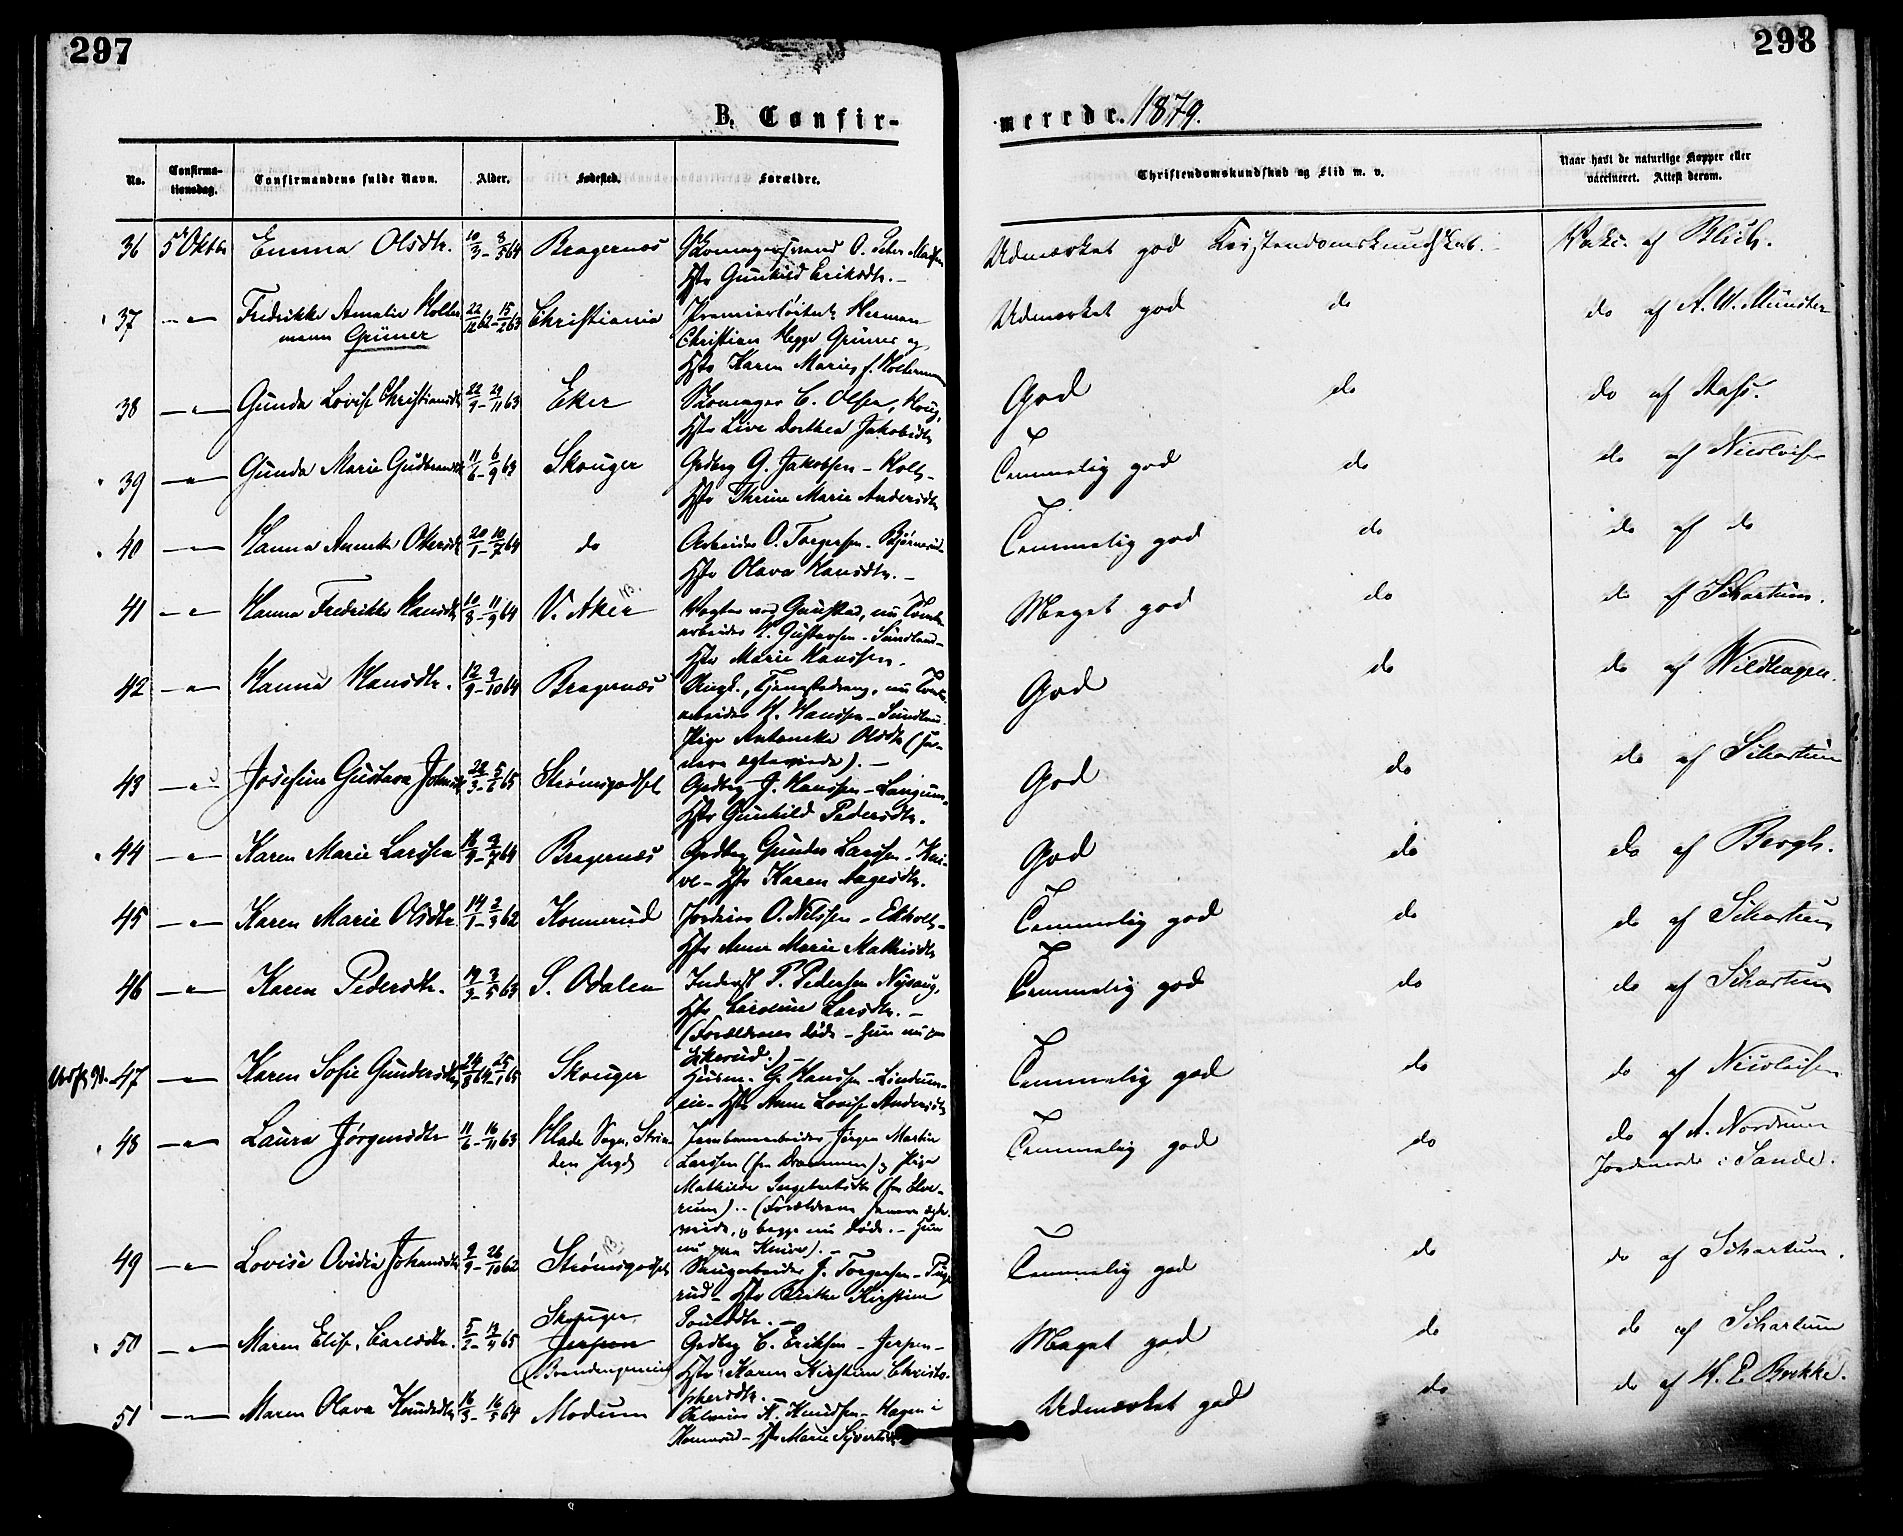 297
298
B. Confir-
merede. 1879.
No.
Confirma-
tionsdag.
Confirmandens fulde Navn.
Alder.
Fødested.
Forældre.
Christendomskundskab og Flid m. v.
Naar havt de naturlige Kopper eller
vaccineret. Attest derom.
36 5te Oktbr Emma Olsdtr. 10/3 - 8/5 64 Bragernæs
Skomagersvend O. Peter
Hstr Gunhild Eriksdtr. -
Udmærket god Kristendomskundskab.
Vakc. af Blich.
37 - " - Fredrikke Amalie Holter
mann Grüner
22/12 62 - 15/2 63 Christiania
Premierløitnt Herman
Christian Hegge Grüner og
Hstr Karen Marie f. Holtermann
Udmærket god do
do af A. W. Münster
38 - " - Gunda Lovise Christiansdtr 22/9 - 29/11 63 Eker
Skomager C. Olsen, Houg,
Hstr Live Dorthea Jakobsdtr
God do
do af Aass.
39 - " - Gunda Marie Gudbrandsdtr 11/6 - 6/9 63 Skouger
Grdbrg G. Jakobsen - Holt -
Hstr Thrine Marie Andersdtr
Temmelig god do
do af Nicolaisen
40 - " - Hanna Annette Olsdtr 20/1 - 10/7 64 do
Arbeider O. Torgersen -
Hstr Olava Hansdtr. -
Temmelig god do
do af do
41 - " - Hanna Fredrikke Hansdtr 10/8 - 11/9 64 V. Aker
Vogter ved Gaustad, nu
arbeider H. Gustavsen - Sundland -
Hstr Marie Hanssen.
Meget god do
do af Schartum.
42 - " - Hanna Hansdtr. 12/9 - 9/10 64 Bragernæs
Ungk., Tjenestedreng, nu
arbeider H. Hanssen - Sundland.
Pige Antonette Olsdtr (
nere ægteviede). -
God do
do af Wildhagen.
43 - " - Josefine Gustava Johnsdtr 22/3 - 5/6 65 Strømsgodset
Grdbrg J. Hanssen -
Hstr Gunhild Pedersdtr.
God do
do af Schartum
44 - " - Karen Marie Larssen 64 Bragernæs
Grdbrg Gunder Larssen - Kni-
ve - Hstr Karen Aagesdtr.
God do
do af Bergh.
45 - " - Karen Marie Olsdtr 14/1 - 2/3 62 Konnerud
O. Nilssen - Ekholt -
Hstr Anne Marie Mathisdtr
Temmelig god do
do af Schartum
46 - " - Karen Pedersdtr. 14/3 - 3/5 63 S. Odalen
Inderst P. Pedersen
Hstr Caroline Larsdtr. -
(Forældrene døde - hun nu paa
Ekerud.) -
Temmelig god do
do af Schartum
47 - " - Karen Sofie Gundersdtr 24/8 64 - 25/1 65 Skouger
Husm. G. Hanssen -
eie - Hstr Anne Lovise Andersdtr
Temmelig god do
do af Nicolaisen
48 - " - Laura Jørgensdtr 11/6 - 16/11 63 Hlade Sogn, Strin-
den Prgd
Jernbanearbeider Jørgen Martin
Larssen (fra Drammen) og Pige
Mathilde Ingebretsdtr (fra Elve-
rum). - (Forældrene senere ægte-
viede, og begge nu døde. - Hun
nu paa Knive). -
Temmelig god do
do af A. Nordrum
Jordmoder i Sande.
49 - " - Lovise Ovidia Johansdtr 9/9 - 26/10 62 Strømsgodset
Brugarbeider J. Torgersen -
rud - Hstr Berthe Kirstine
Poulsdtr. -
Temmelig god do
do af Schartum.
50 - " - Maren Elise Carlsdtr. 65
Skouger
Jerpen
Grdbrg C. Eriksen - Jerpen -
Hstr Karen Kirstine Christo-
phersdtr.
Meget god do
do af Schartum
51 - " - Maren Olava Knudsdtr 16/3 - 16/5 64 Modum
K. Knudsen - Hagen i
Konnerud - Hstr Marie Syvertsdtr
Udmærket god do
do af H. P. Bukke.